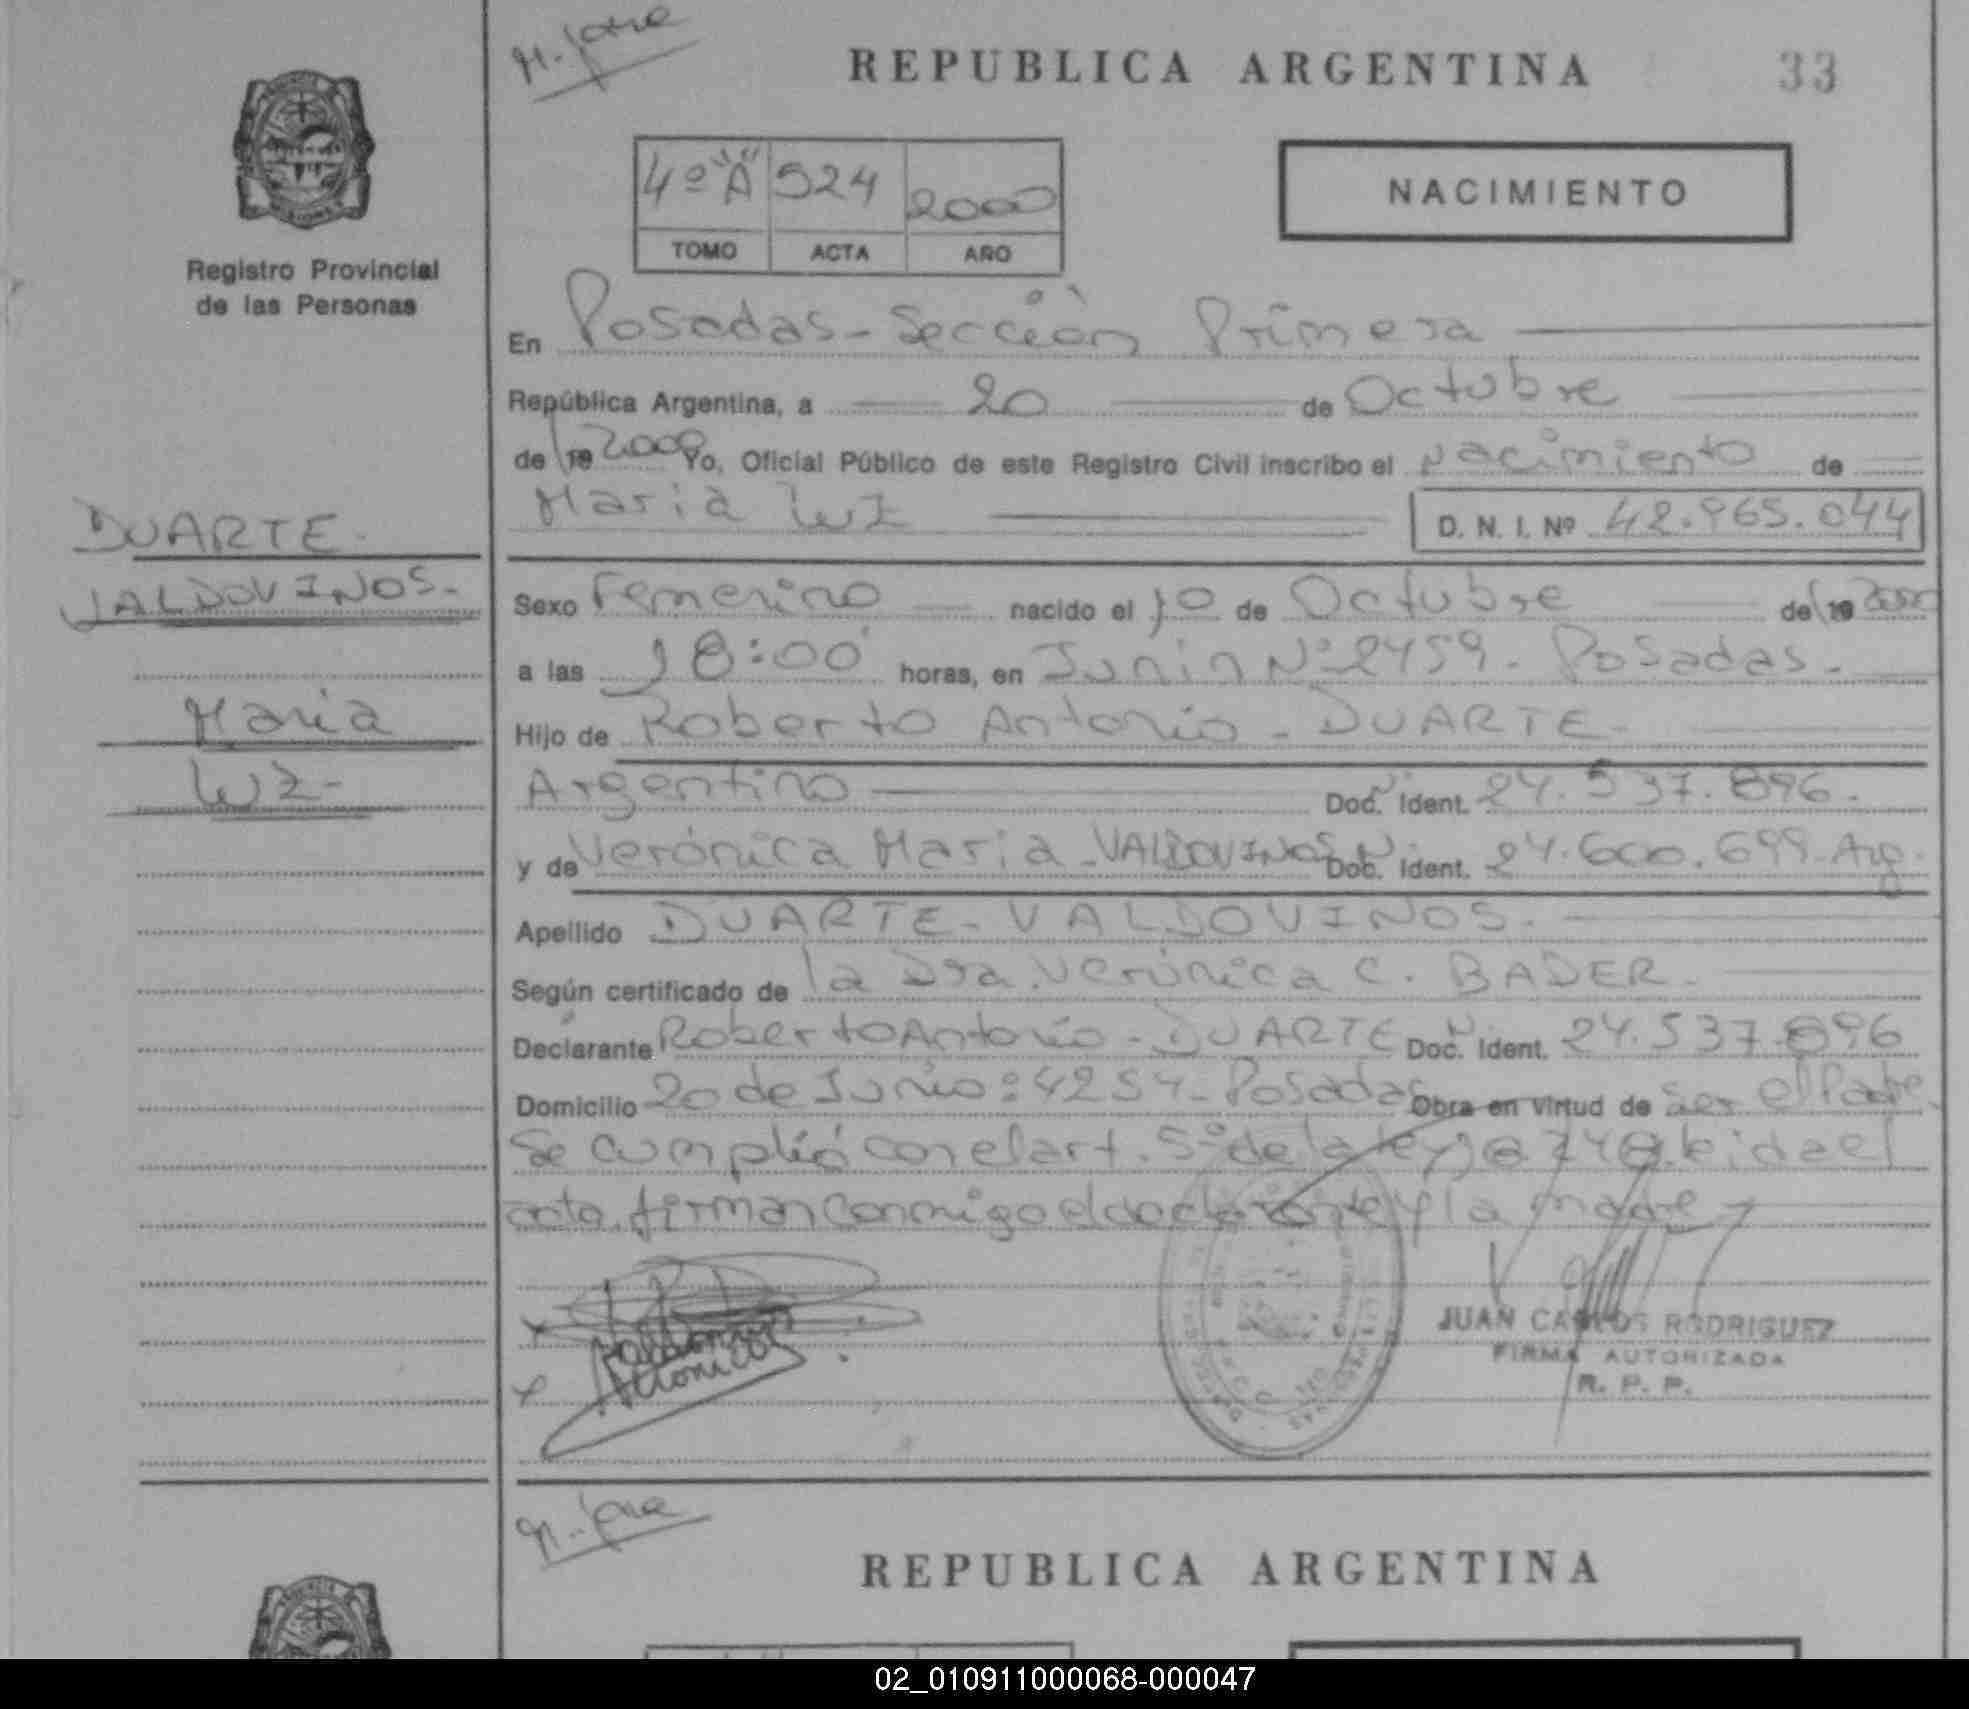 M. Jone
REPUBLICA ARGENTINA 33
4º "A" 524 2000
TOMO ACTA AÑO
NACIMIENTO
Registro Provincial
de las Personas
En Posadas - Sección Primera
República Argentina, a 20 de Octubre
de 19 2000 Yo, Oficial Público de este Registro Civil inscribo el nacimiento de
Maria Luz D. N. I. Nº 42.965.044
DUARTE -
VALDOVINOS -
Maria
Luz -
Sexo Femenino nacido el 10 de Octubre de 19 2000
a las 18:00 horas, en Junin Nº 2459 - Posadas -
Hijo de Roberto Antonio - DUARTE -
Argentino Doc. Ident. 24.537.896 -
y de Verónica Maria - VALDOVINOS N: Doc. Ident. 24.600.699 - Arg.
Apellido DUARTE - VALDOVINOS -
Según certificado de la Dra. Verónica C. BADER -
Declarante Roberto Antonio - DUARTE Doc. Ident. 24.537.896
Domicilio 20 de Junio: 4254 - Posadas Obra en virtud de ser el Padre
Se cumplió con el art. 5º de la ley leida el
acta, firman conmigo el declarante y la madre
Valdovinos
Veronica
JUAN CARLOS RODRIGUEZ
FIRMA AUTORIZADA
R. P. P.
REPUBLICA ARGENTINA
02_010911000068-000047